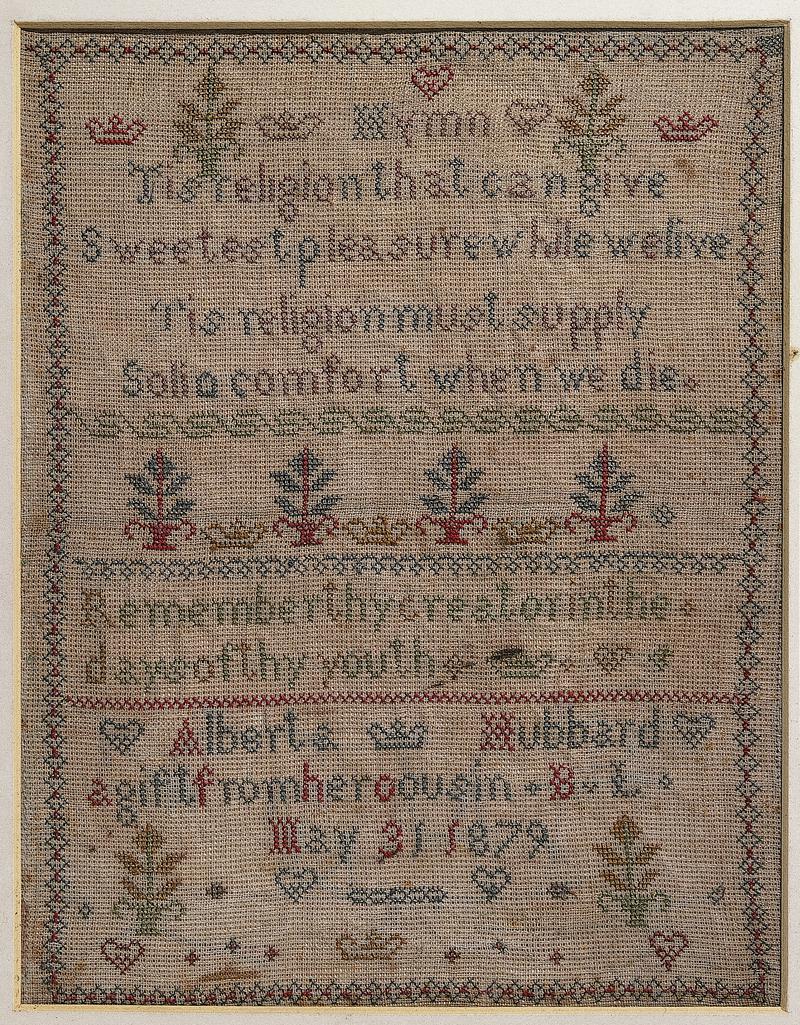 Hymn
Tis religion that can give
Sweetest pleasure while we live
Tis religion must supply
Solid comfort when we die.
Remember thy creator in the
days of thy youth
Alberta Hubbard
a gift from her cousin B L
May 31 1879